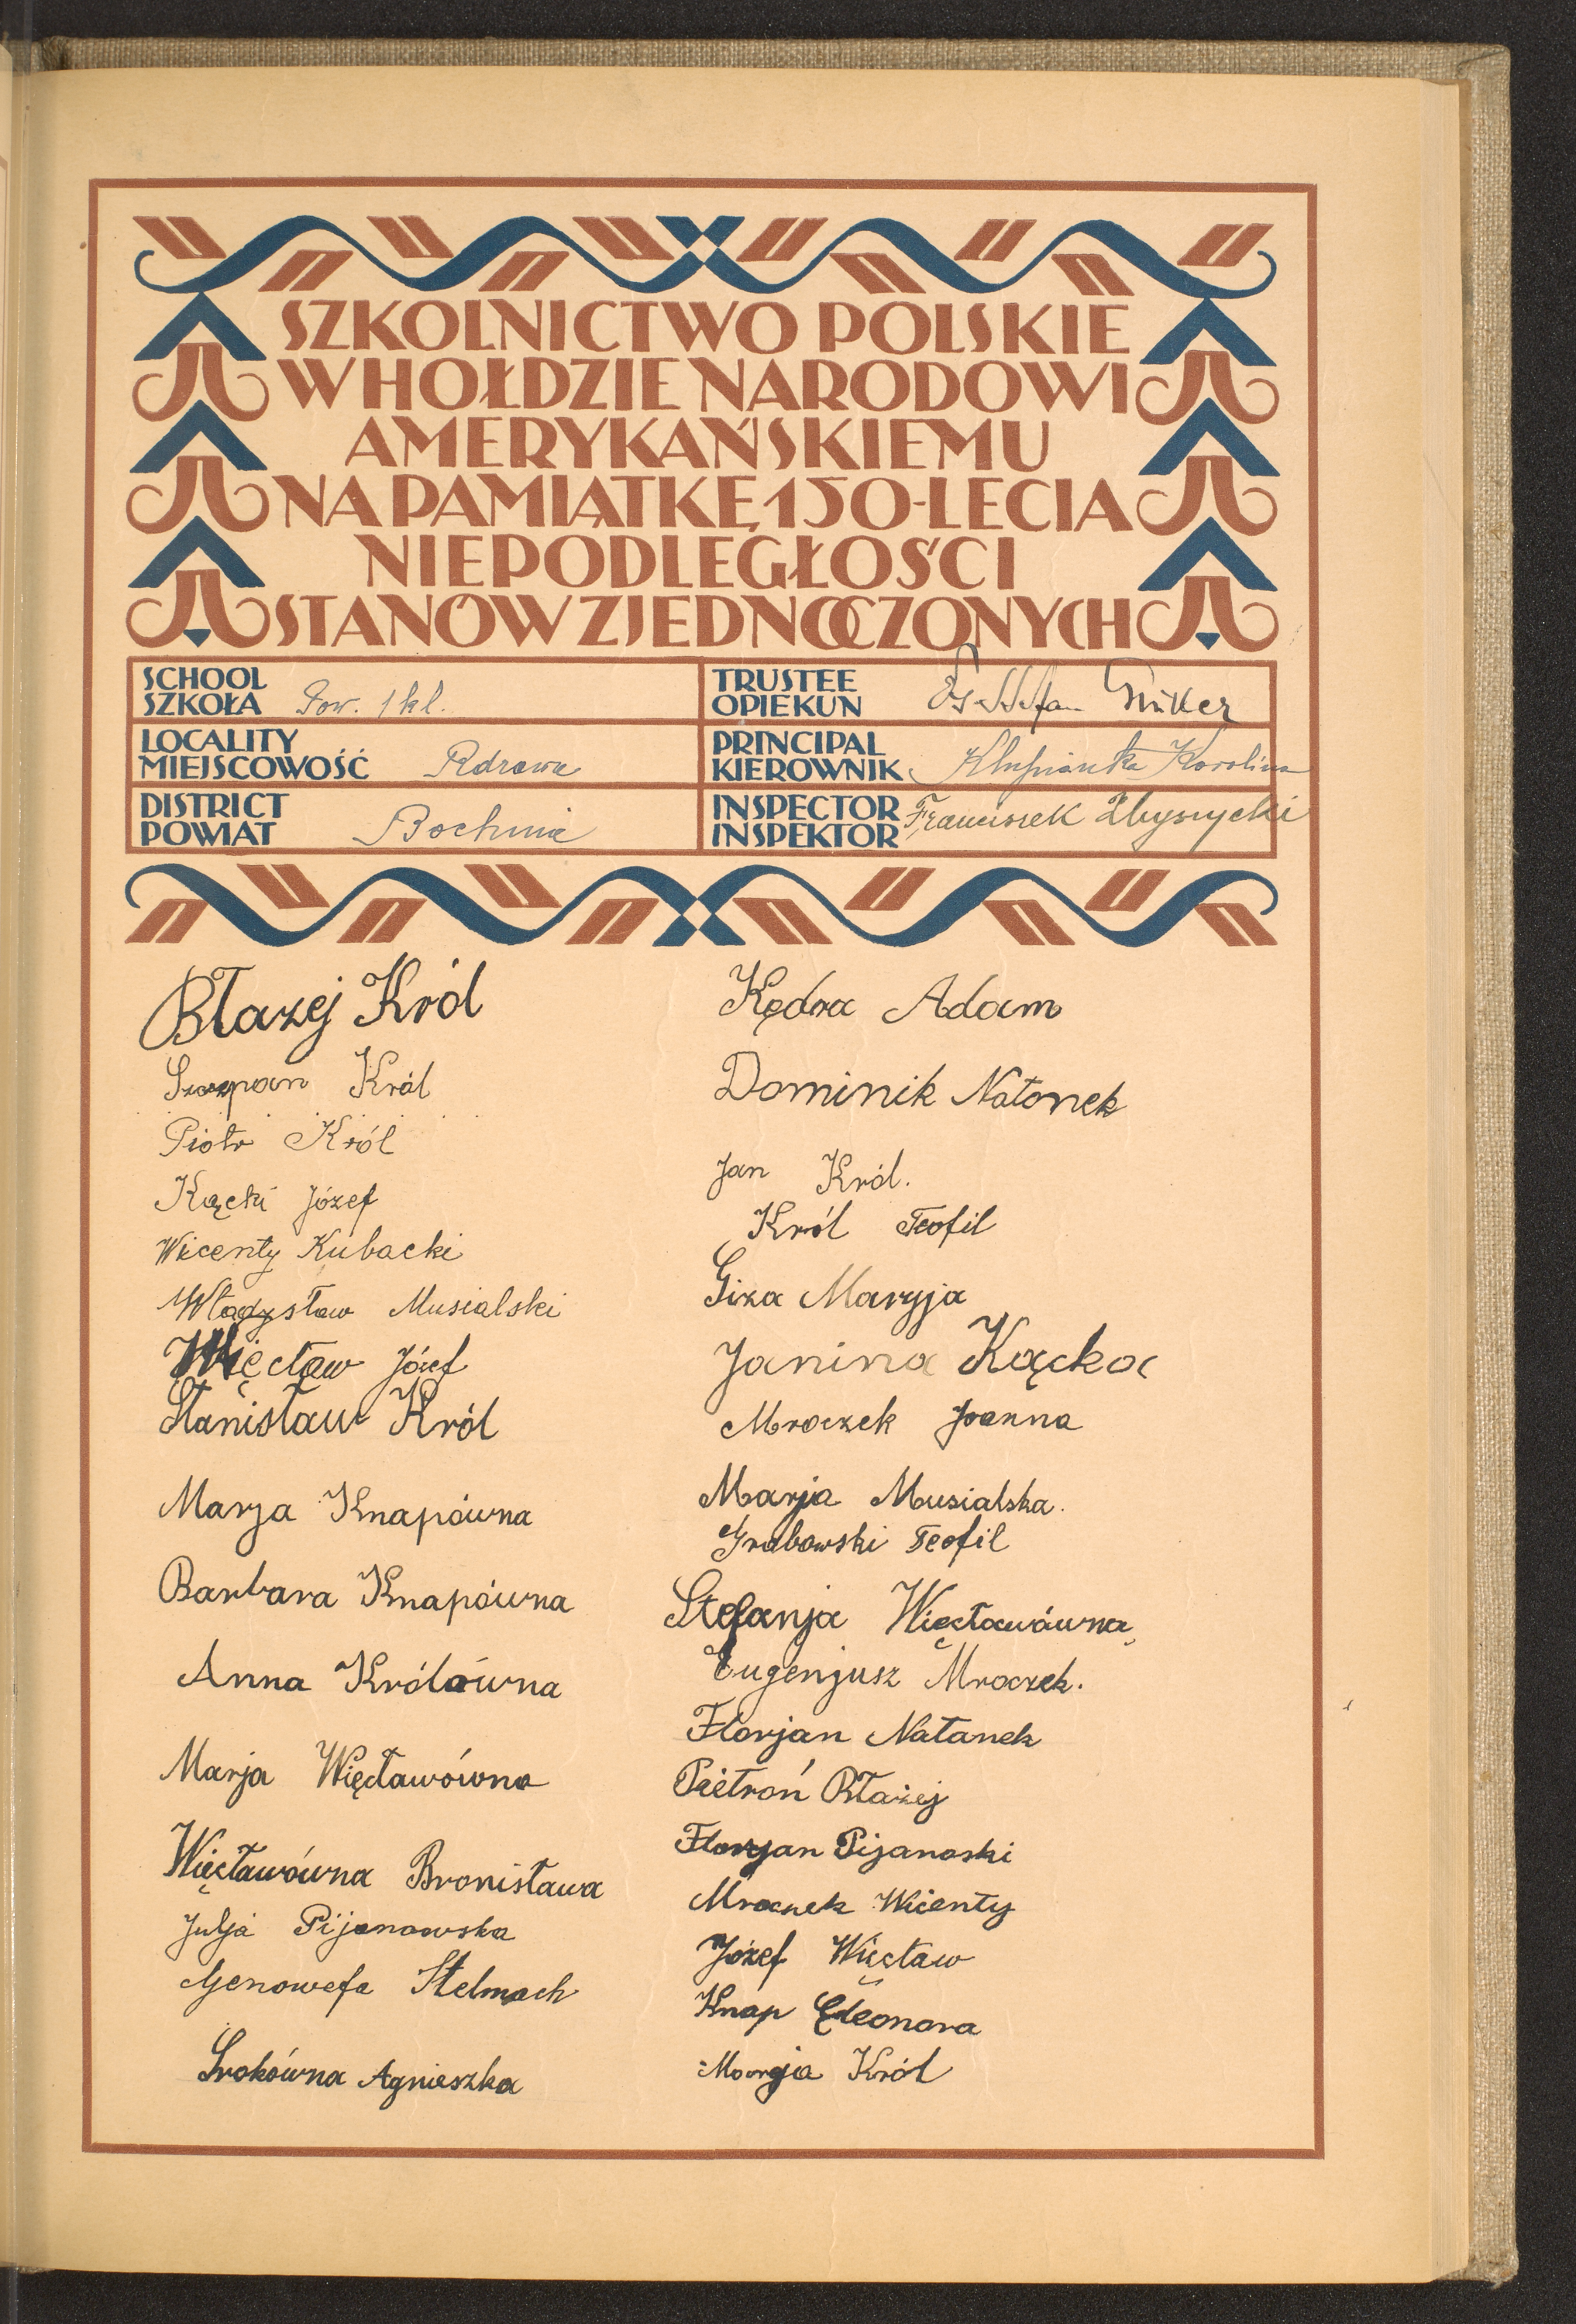 SZKOLNICTWO POLSKIE
W HOŁDZIE NARODOWI
AMERYKAŃSKIEMU
NA PAMIĄTKĘ 150-LECIA
NIEPODLEGŁOŚCI
STANÓW ZJEDNOCZONYCH
SCHOOL
SZKOŁA Pow. 1 kl.
LOCALITY
MIEJSCOWOŚĆ Rdzawa
DISTRICT
POWIAT Bochnia
TRUSTEE
OPIEKUN
PRINCIPAL
KIEROWNIK Karolina
INSPECTOR
INSPEKTOR Franciszek
Błazej Król
Szczepan Król
Piotr Król
Kącki Józef
Wicenty Kubacki
Władysław Musialski
Więcław Józef
Stanisław Król
Marja Knapówna
Barbara Knapówna
Anna Królówna
Marja Więcławówna
Więcławówna Bronisława
Julja Pijanowska
Genowefa Stelmach
Srokówna Agnieszka
Kędra Adam
Dominik Natonek
Jan Król.
Król Teofil
Giza Maryja
Janina Kącka
Mroczek Joanna
Marja Musialska.
Grabowski Teofil
Stefanja Więcławówna
Eugenjusz Mroczek.
Florjan Natanek
Pietroń Błażej
Florjan Pijanoski
Mroczek Wicenty
Józef Więcław
Knap Eleonora
Marja Król